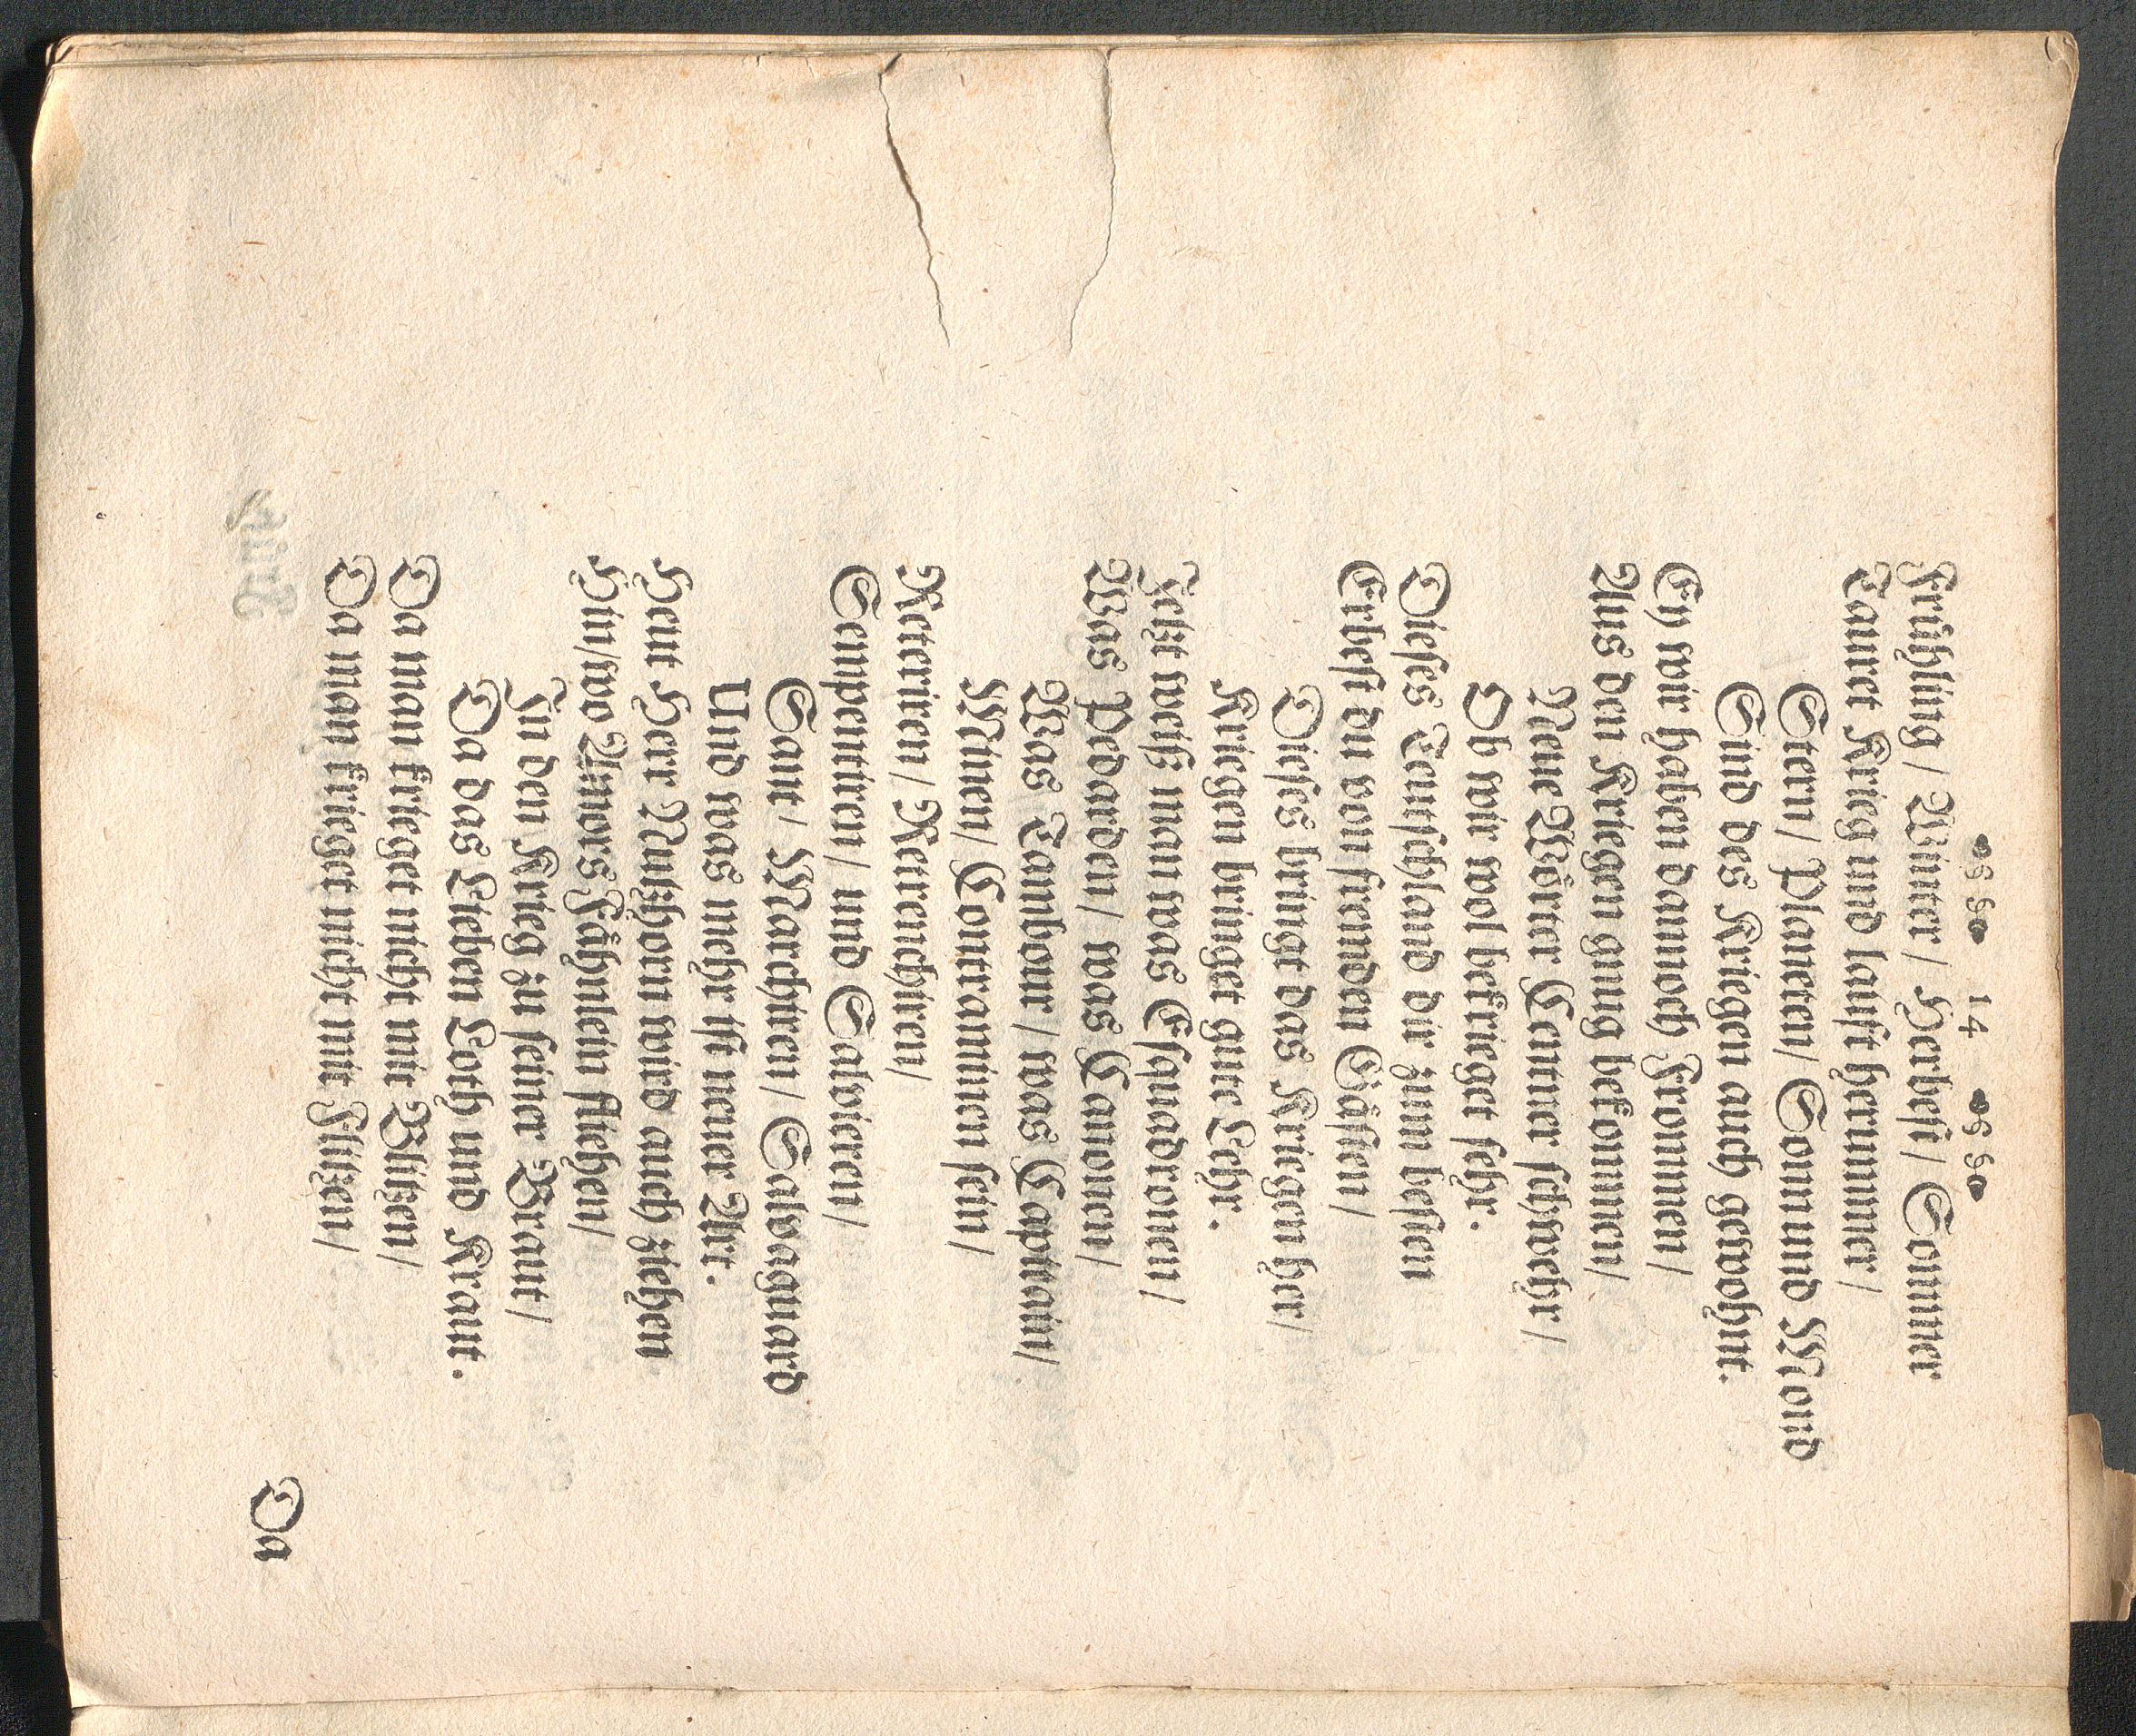 14
Frühling / Winter / Herbest / Sommer
Tauret Krieg und laufft herummer /
Stern / Planeten / Sonn und Mond
Sind des Kriegen auch gewohnt.
Ey wir haben dannoch Frommen /
Aus den Kriegen gnug bekommen /
Neue Wörter Centner schwehr /
Ob wir wol bekrieget sehr.
Dieses Teutschland dir zum besten
Erbest du von fremden Gästen /
Dieses bringt das Kriegen her /
Kriegen bringet gute Lehr.
Jetzt weiß man was Esquadronen /
Was Pedarden / was Canonen /
Was Tambour / was Capitain /
Minen / Contraminen sein /
Reteriren / Retrenchiren /
Tempentiren / und Salvieren /
Saut / Marchiren / Salvaguard
Und was mehr ist neuer Art.
Heut Herr Nutzhorn wird auch ziehen
Hin / wo Amors Fähnlein fliehen /
In den Krieg zu seiner Braut /
Da das Lieben Loth und Kraut.
Da man krieget nicht mit Blitzen /
Da man krieget nicht mit Flitzen /
Da